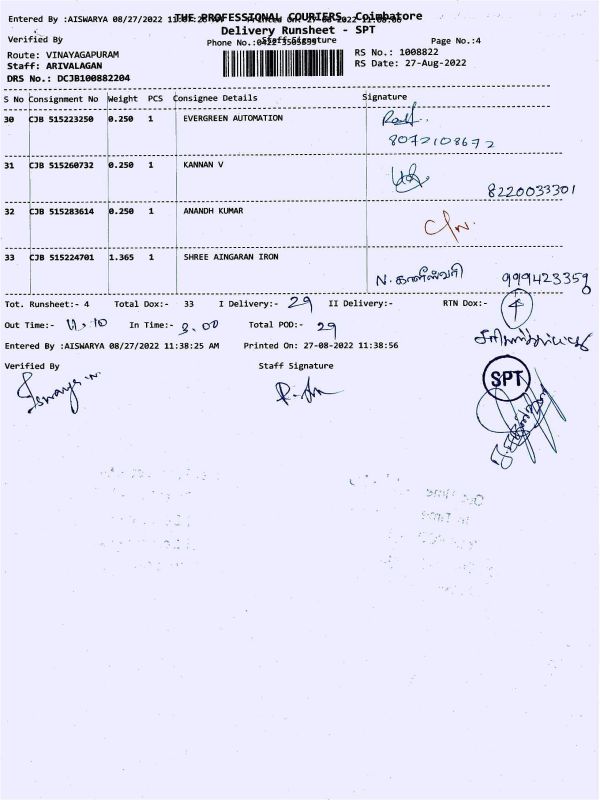 THE PROFESSIONAL COURIERS, Coimbatore
Entered By :AISWARYA 08/27/2022
Delivery Runsheet - SPT
Verified By Staff Signature
Phone No.: Page No.:4
Route: VINAYAGAPURAM RS No.: 1008822
Staff: ARIVALAGAN RS Date: 27-Aug-2022
DRS No.: DCJB100882204
S No Consignment No Weight PCS Consignee Details Signature
30 CJB 515223250 0.250 1 EVERGREEN AUTOMATION
8072108672
31 CJB 515260732 0.250 1 KANNAN V
8220033301
32 CJB 515283614 0.250 1 ANANDH KUMAR
33 CJB 515224701 1.365 1 SHREE AINGARAN IRON
999423359
Tot. Runsheet:- 4 Total Dox:- 33 I Delivery:- 29 II Delivery:- RTN Dox:- 4
Out Time:- 11.10 In Time:- 3.00 Total POD:- 29
Entered By :AISWARYA 08/27/2022 11:38:25 AM Printed On: 27-08-2022 11:38:56
Verified By Staff Signature
SPT